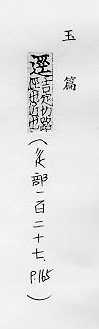 玉篇
逕吉定切路徑也近也(辵部一百二十七、P.165)